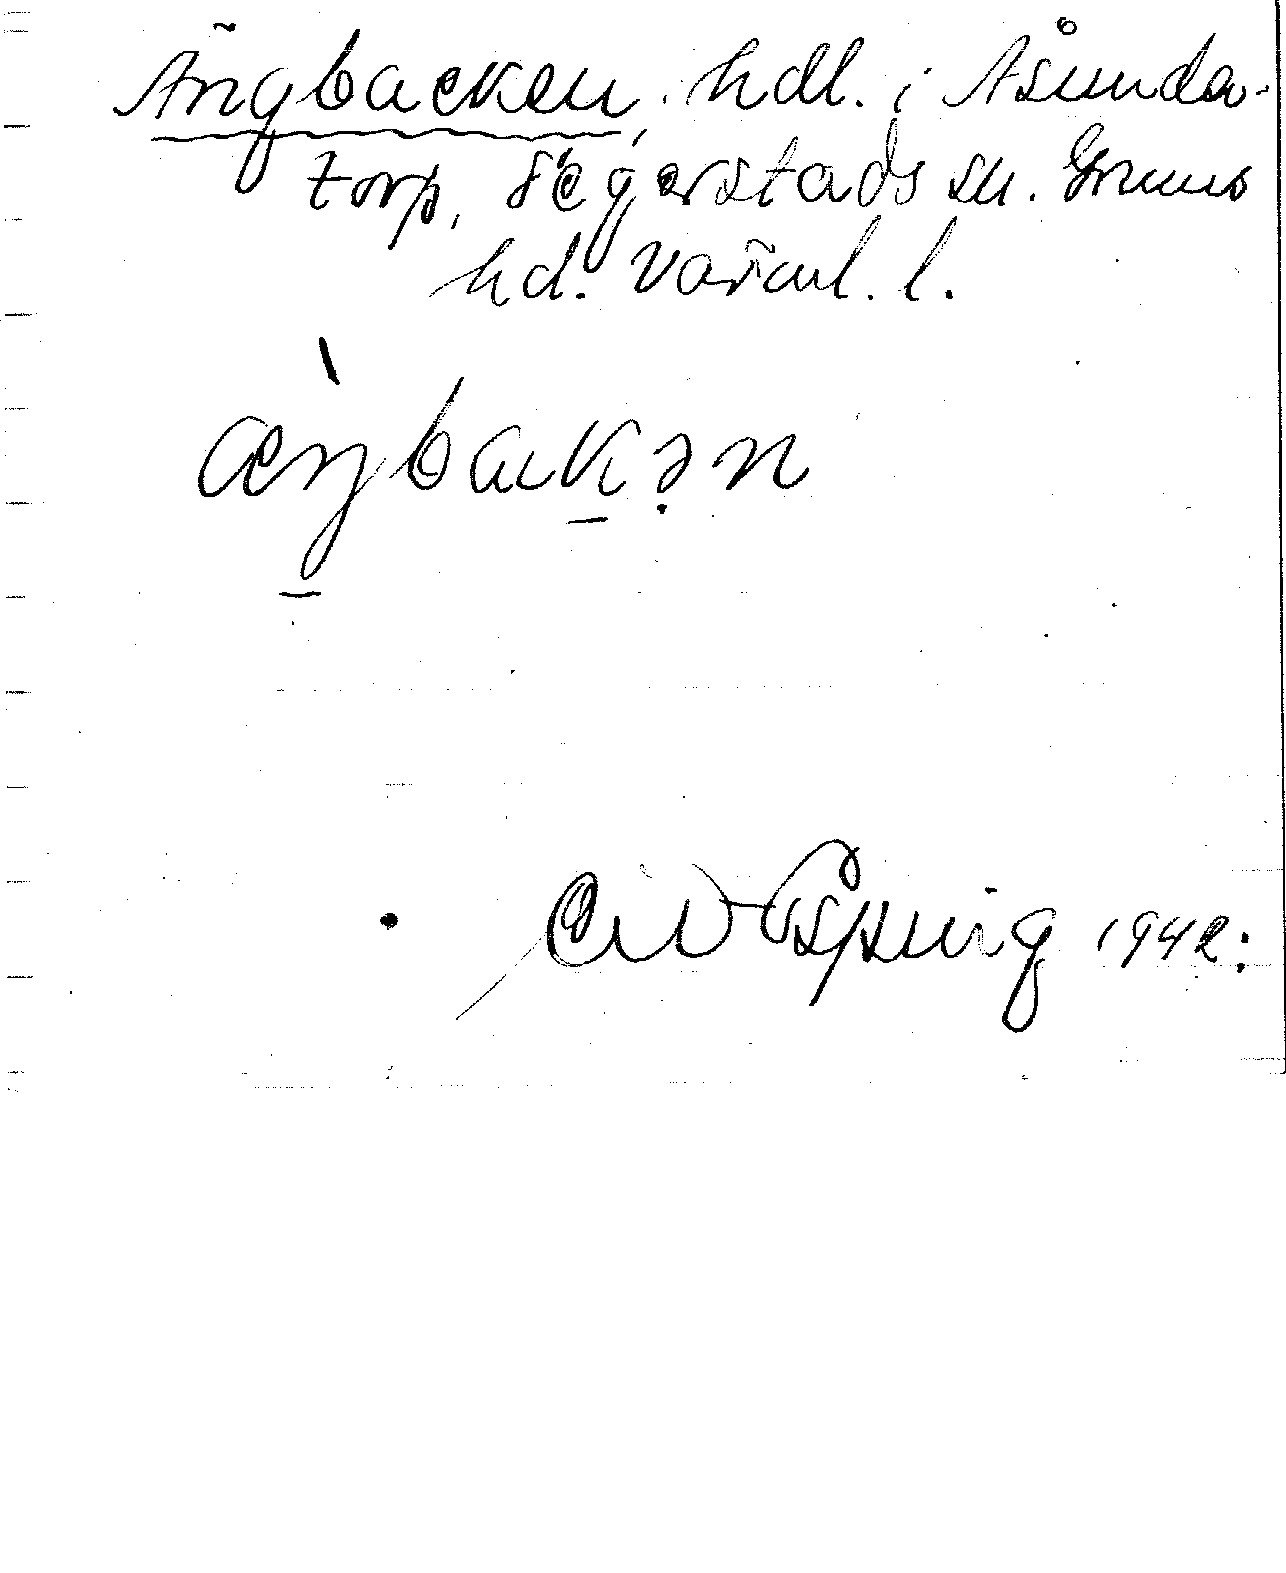 Ängbacken, hdl. i Åsunda-
torp, Segerstads sn. Grums
hd. Värml. l.
æŋbakən
Spring 1942.